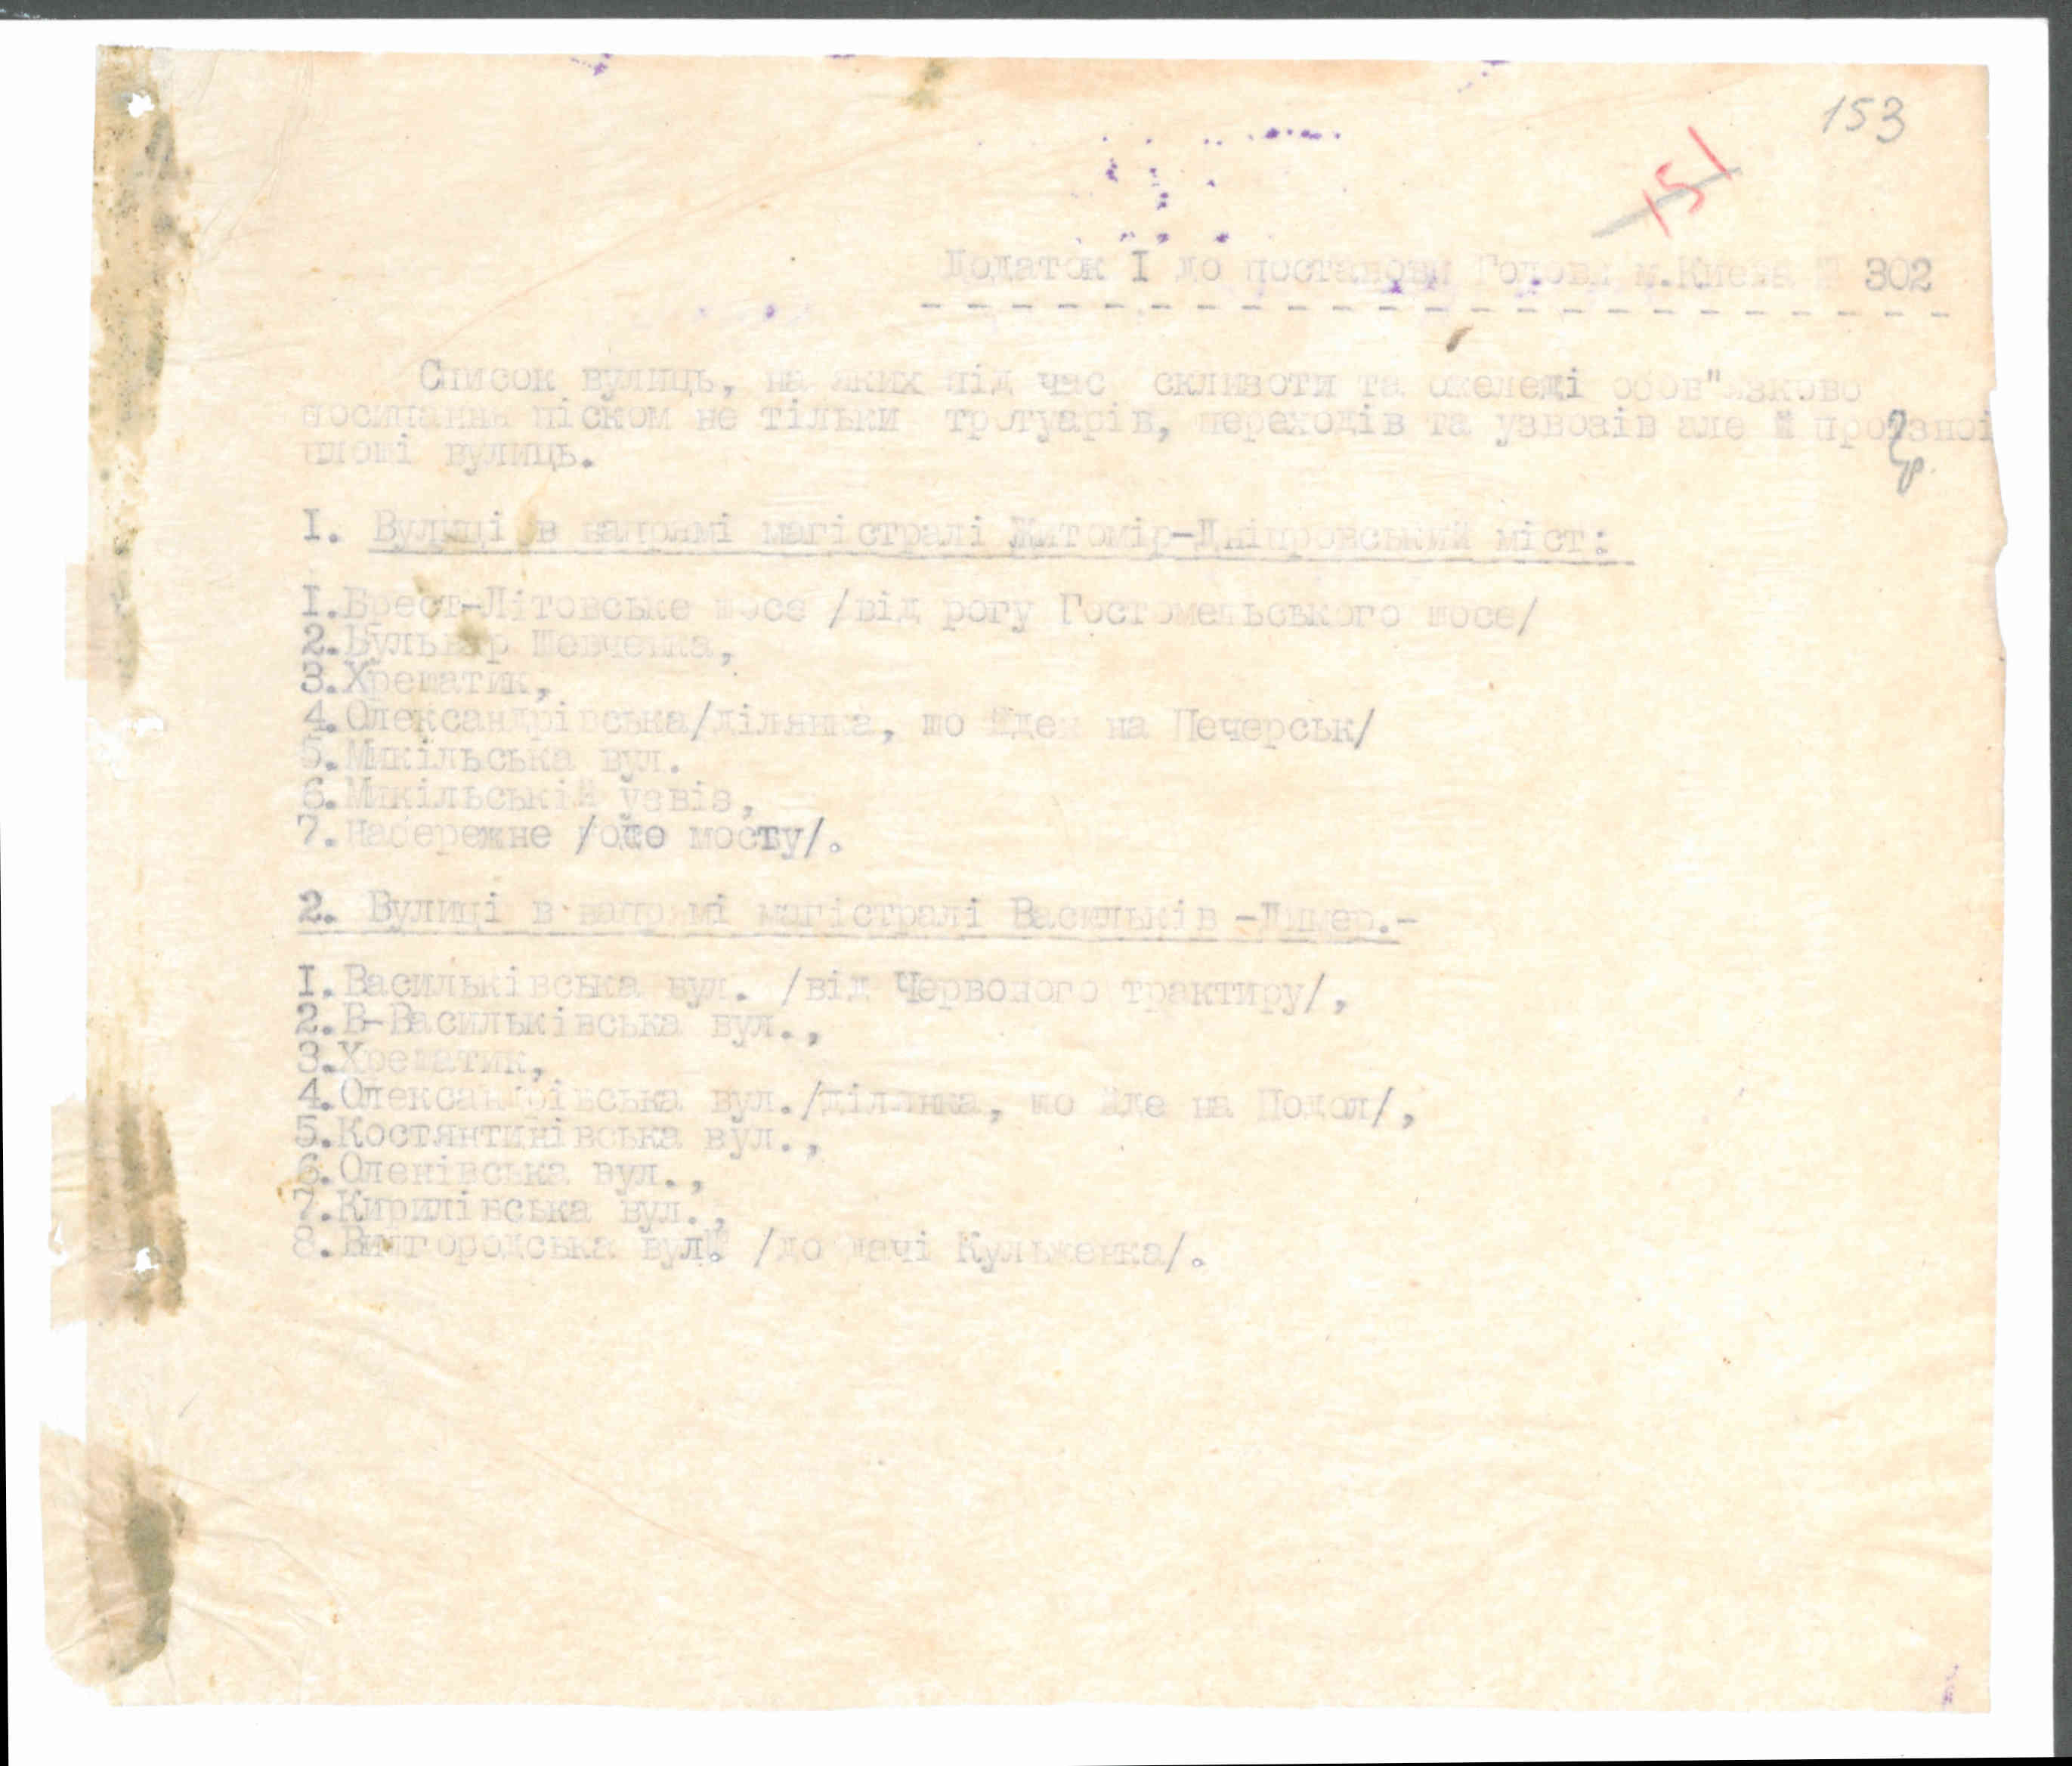 153
151
Додаток I до постанови Голови м.Києва № 302
Список вулиць, на яких під час склизоти та ожеледі обов"язково
посипання піском не тільки тротуарів, переходів та узвозів але й проїзної
площі вулиць.
I. Вулиці в напрямі магістралі Житомір-Дніпровський міст:
I.Брест-Літовське шосе /від рогу Гостомельського шосе/
2.Бульвар Шевченка,
3.Хрещатик,
4.Олександрівська/ділянка, що йде на Печерськ/
5.Микільська вул.
6.Микільській узвіз,
7.Набережне /до мосту/.
2. Вулиці в напрямі магістралі Васильків -Димер.-
I.Васильківська вул. /від Червоного трактиру/,
2.В-Васильківська вул.,
3.Хрещатик,
4.Олександрівська вул./ділянка, що йде на Подол/,
5.Костянтинівська вул.,
6.Оленівська вул.,
7.Кирилівська вул.,
8.Вишгородська вул. /до дачі Кульженка/.